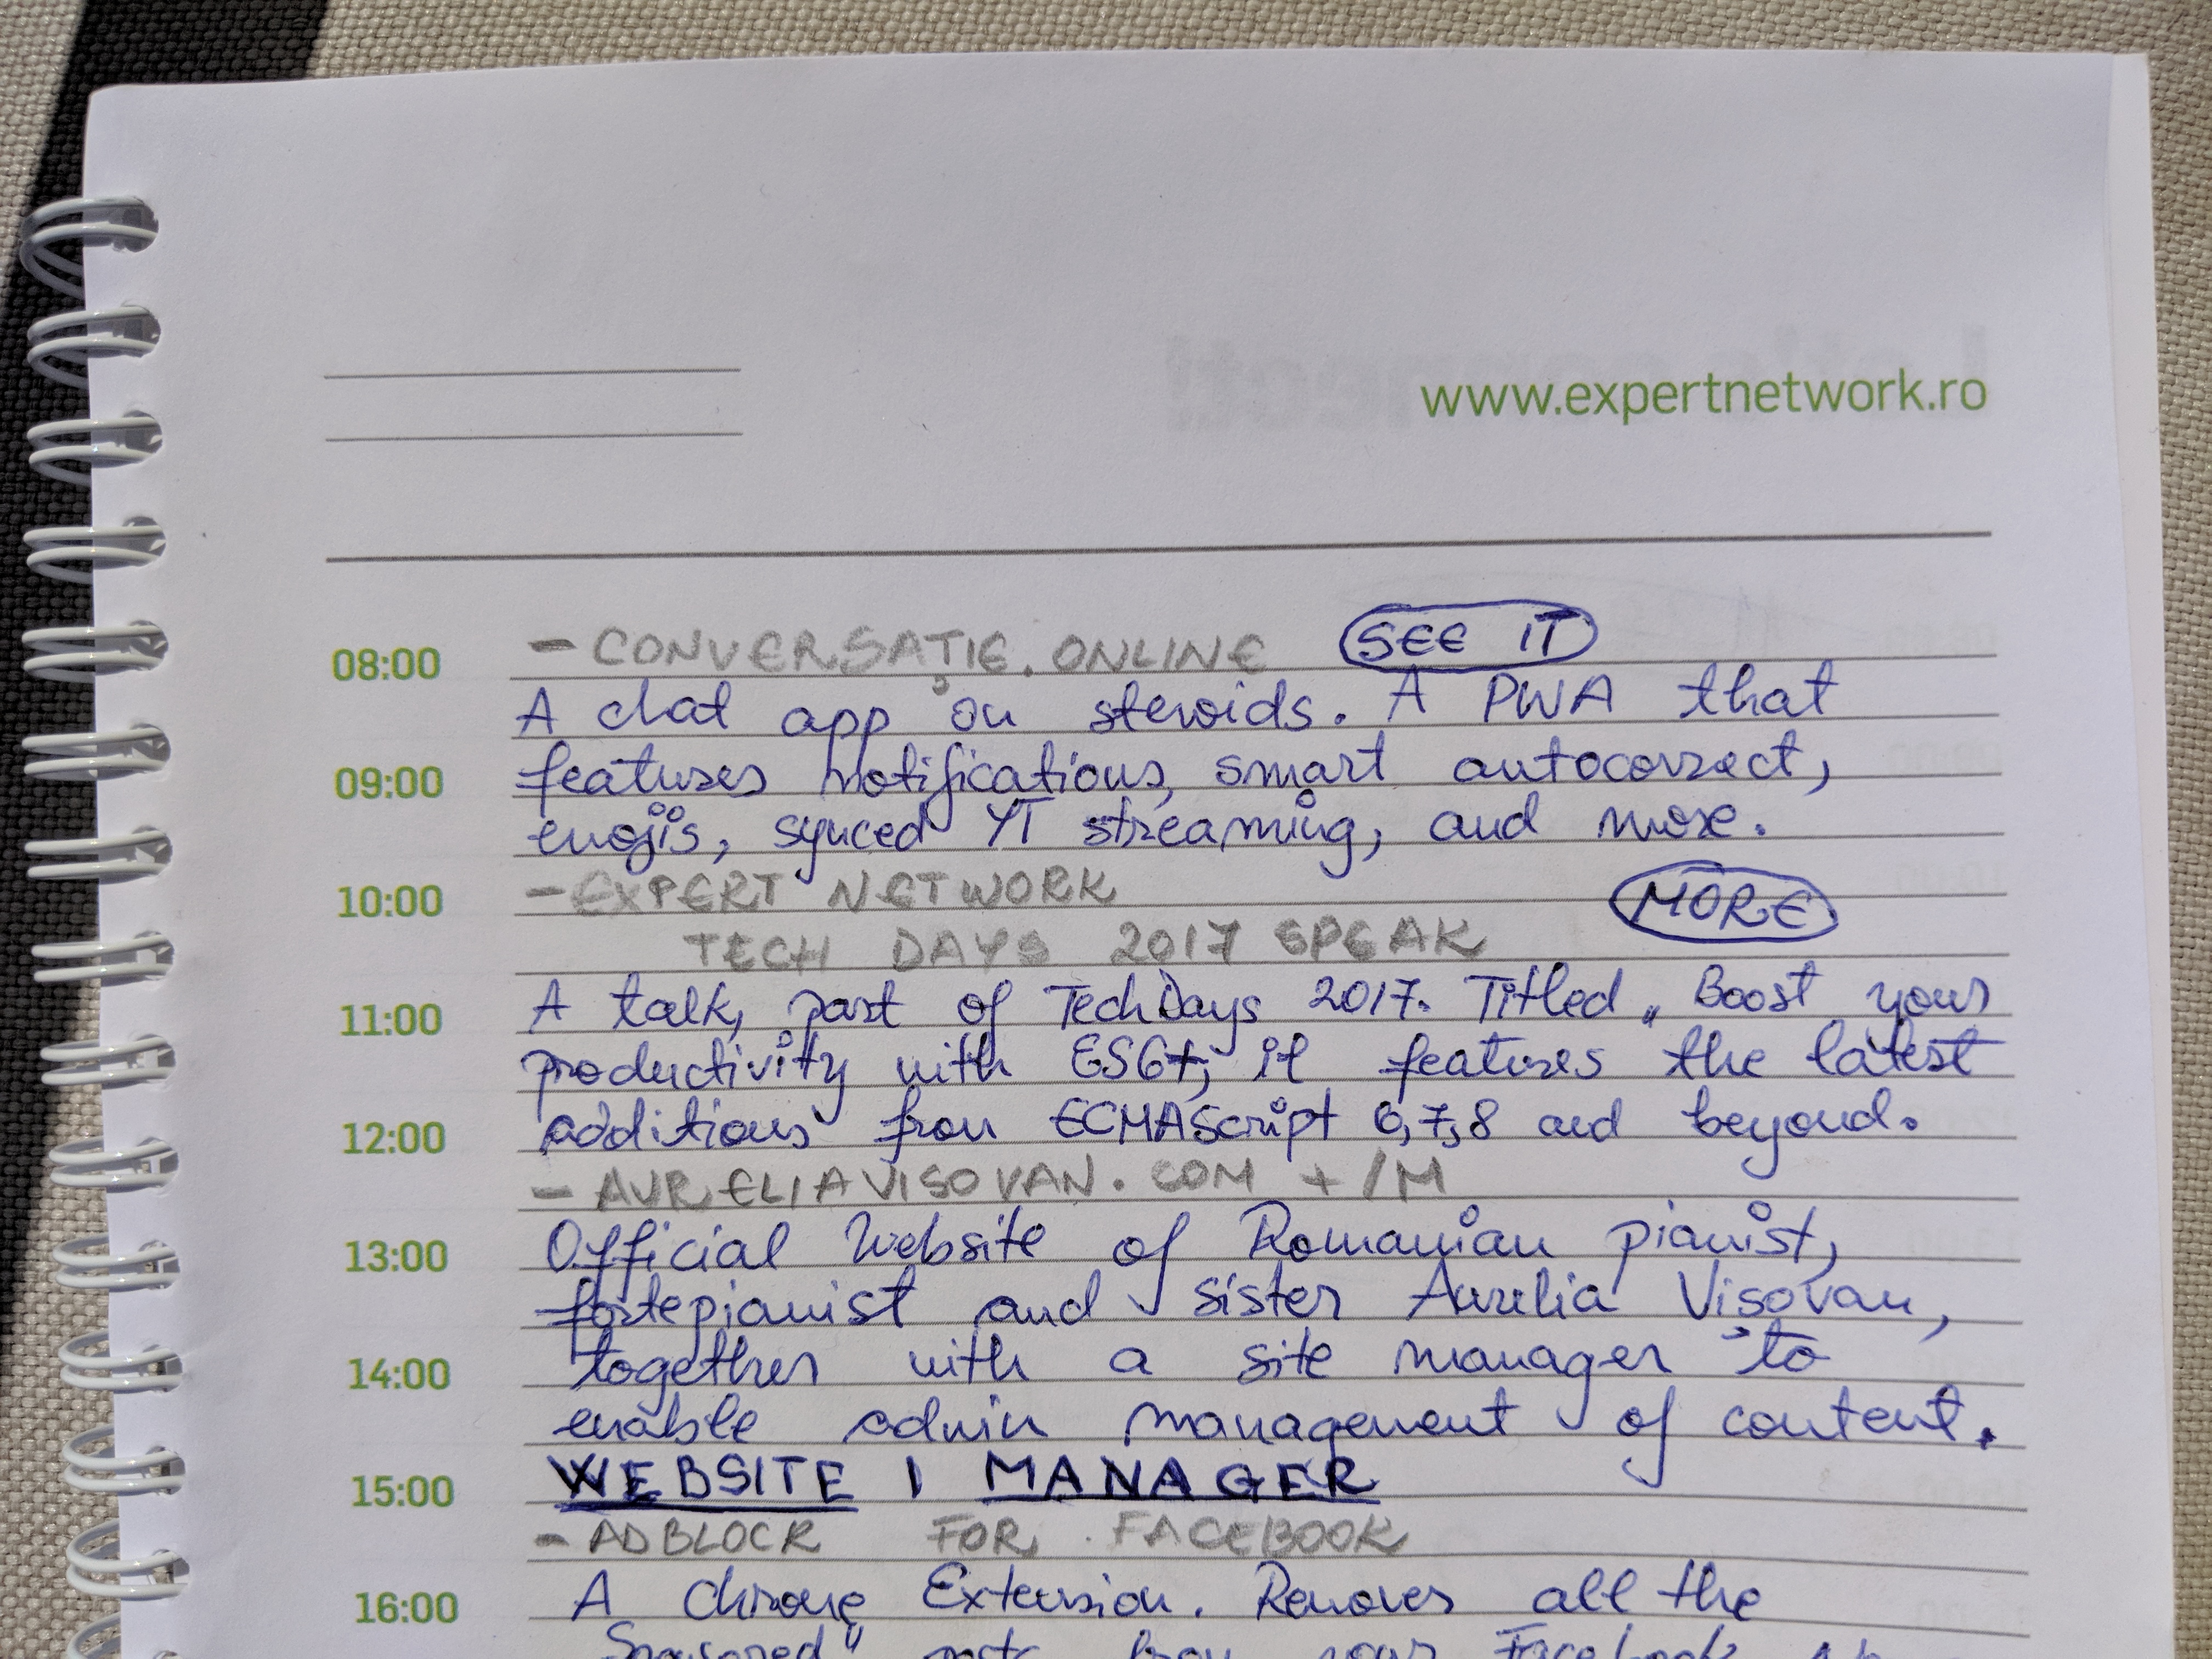 www.expertnetwork.ro
08:00 - CONVERSAȚIE.ONLINE SEE IT
A chat app on steroids. A PWA that
09:00 features notifications, smart autocorrect,
emojis, synced YT streaming, and more.
10:00 - EXPERT NETWORK MORE
TECH DAYS 2017 SPEAK
11:00 A talk, part of TechDays 2017. Titled „Boost your
productivity with ES6+, it features the latest
12:00 additions from ECMAScript 6,7,8 and beyond.
- AURELIAVISOVAN.COM + /M
13:00 Official website of Romanian pianist,
fortepianist and sister Aurelia Vișovan,
14:00 together with a site manager to
enable admin management of content.
15:00 WEBSITE | MANAGER
- ADBLOCK FOR FACEBOOK
16:00 A Chrome Extension. Removes all the
Sponsored" posts from your Facebook